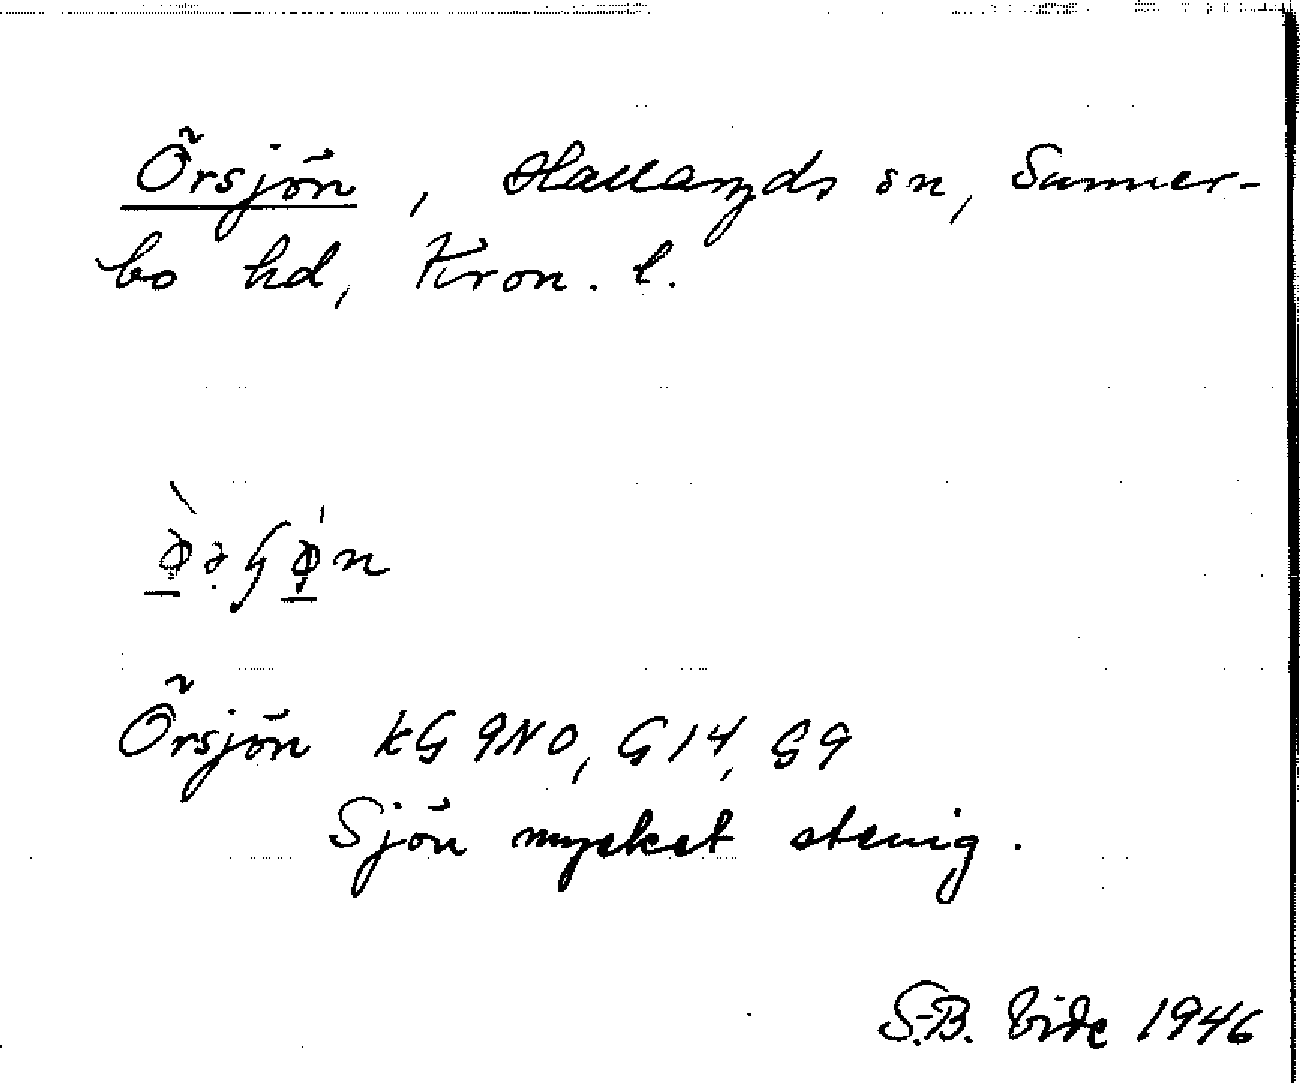 Örsjön, Hallaryds sn, Sunner-
bo hd, Kron. l.
Örsjön kG 9NO, G14, G9
Sjön mycket stenig.
S.-B. Vide 1946